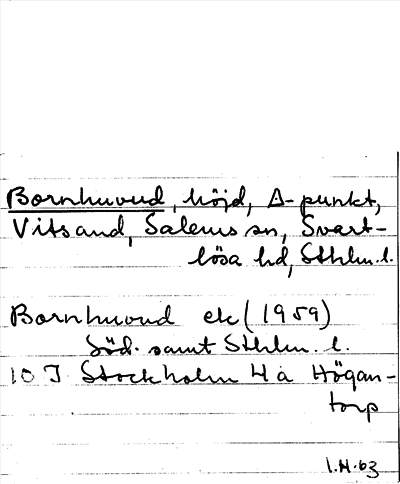 Bornhuvud, höjd, Δ-punkt,
Vitsand, Salems sn, Svart-
lösa hd, Sthlm.l.
Bornhuvud ek (1959)
Söd. samt Sthlm. l.
10 I Stockholm 4 a Högan-
torp
I.H.63